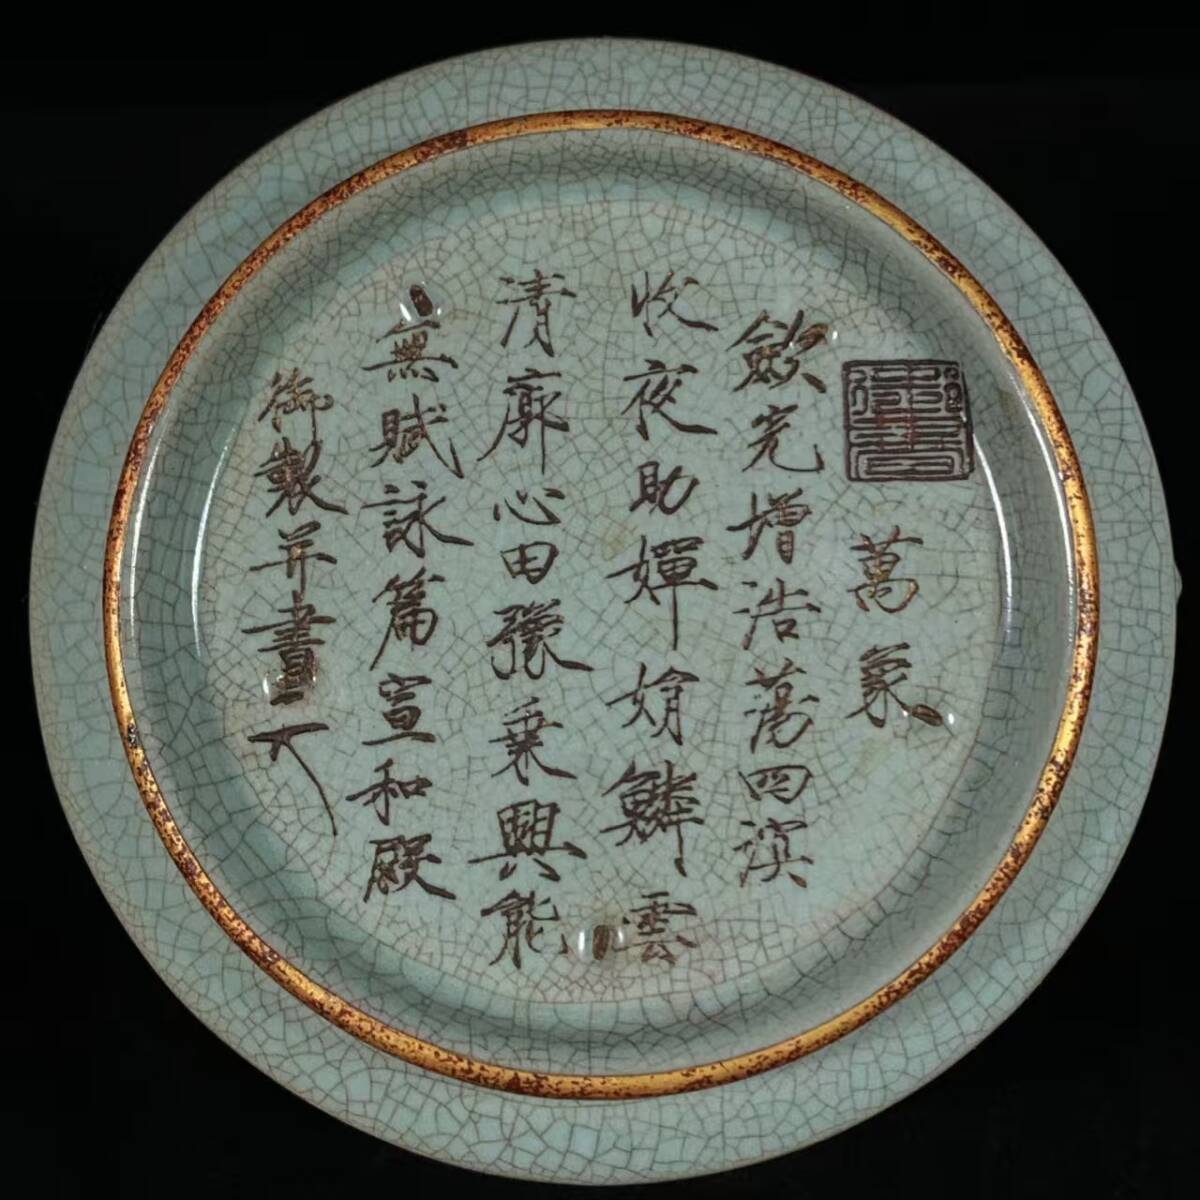 萬象
歛光增浩蕩四溟
收夜助嬋娟鱗雲
清廓心田豫乘興能
無賦詠篇宣和殿
御製并書